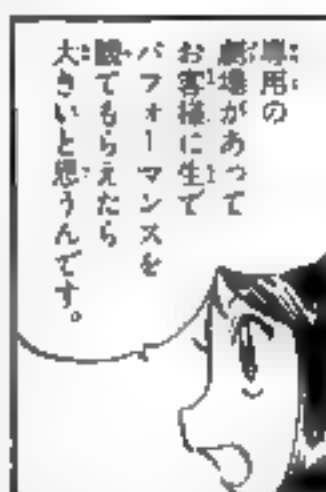 専用の
劇場があって
お客様に生で
パフォーマンスを
観てもらえたら
大きいと思うんです。